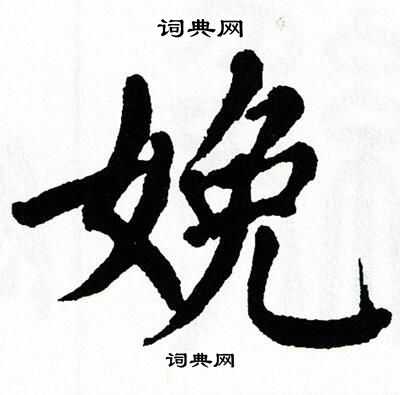 词典网
娩
词典网